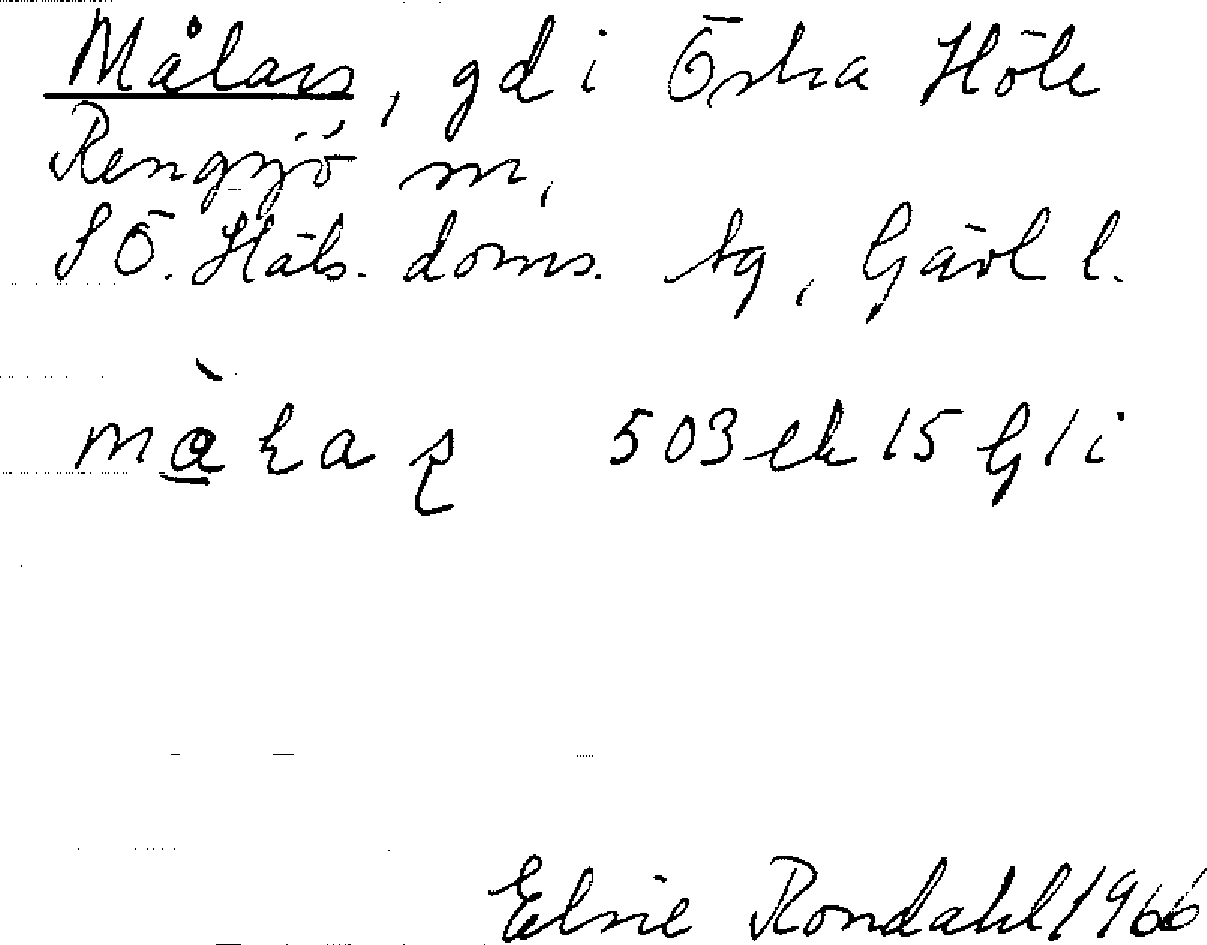 Målars, gd i Östra Höle
Rengsjö sn,
SÖ. Häls. doms. tg, Gävl l.
503 ek 15 G l i
Elsie Rondahl 1966